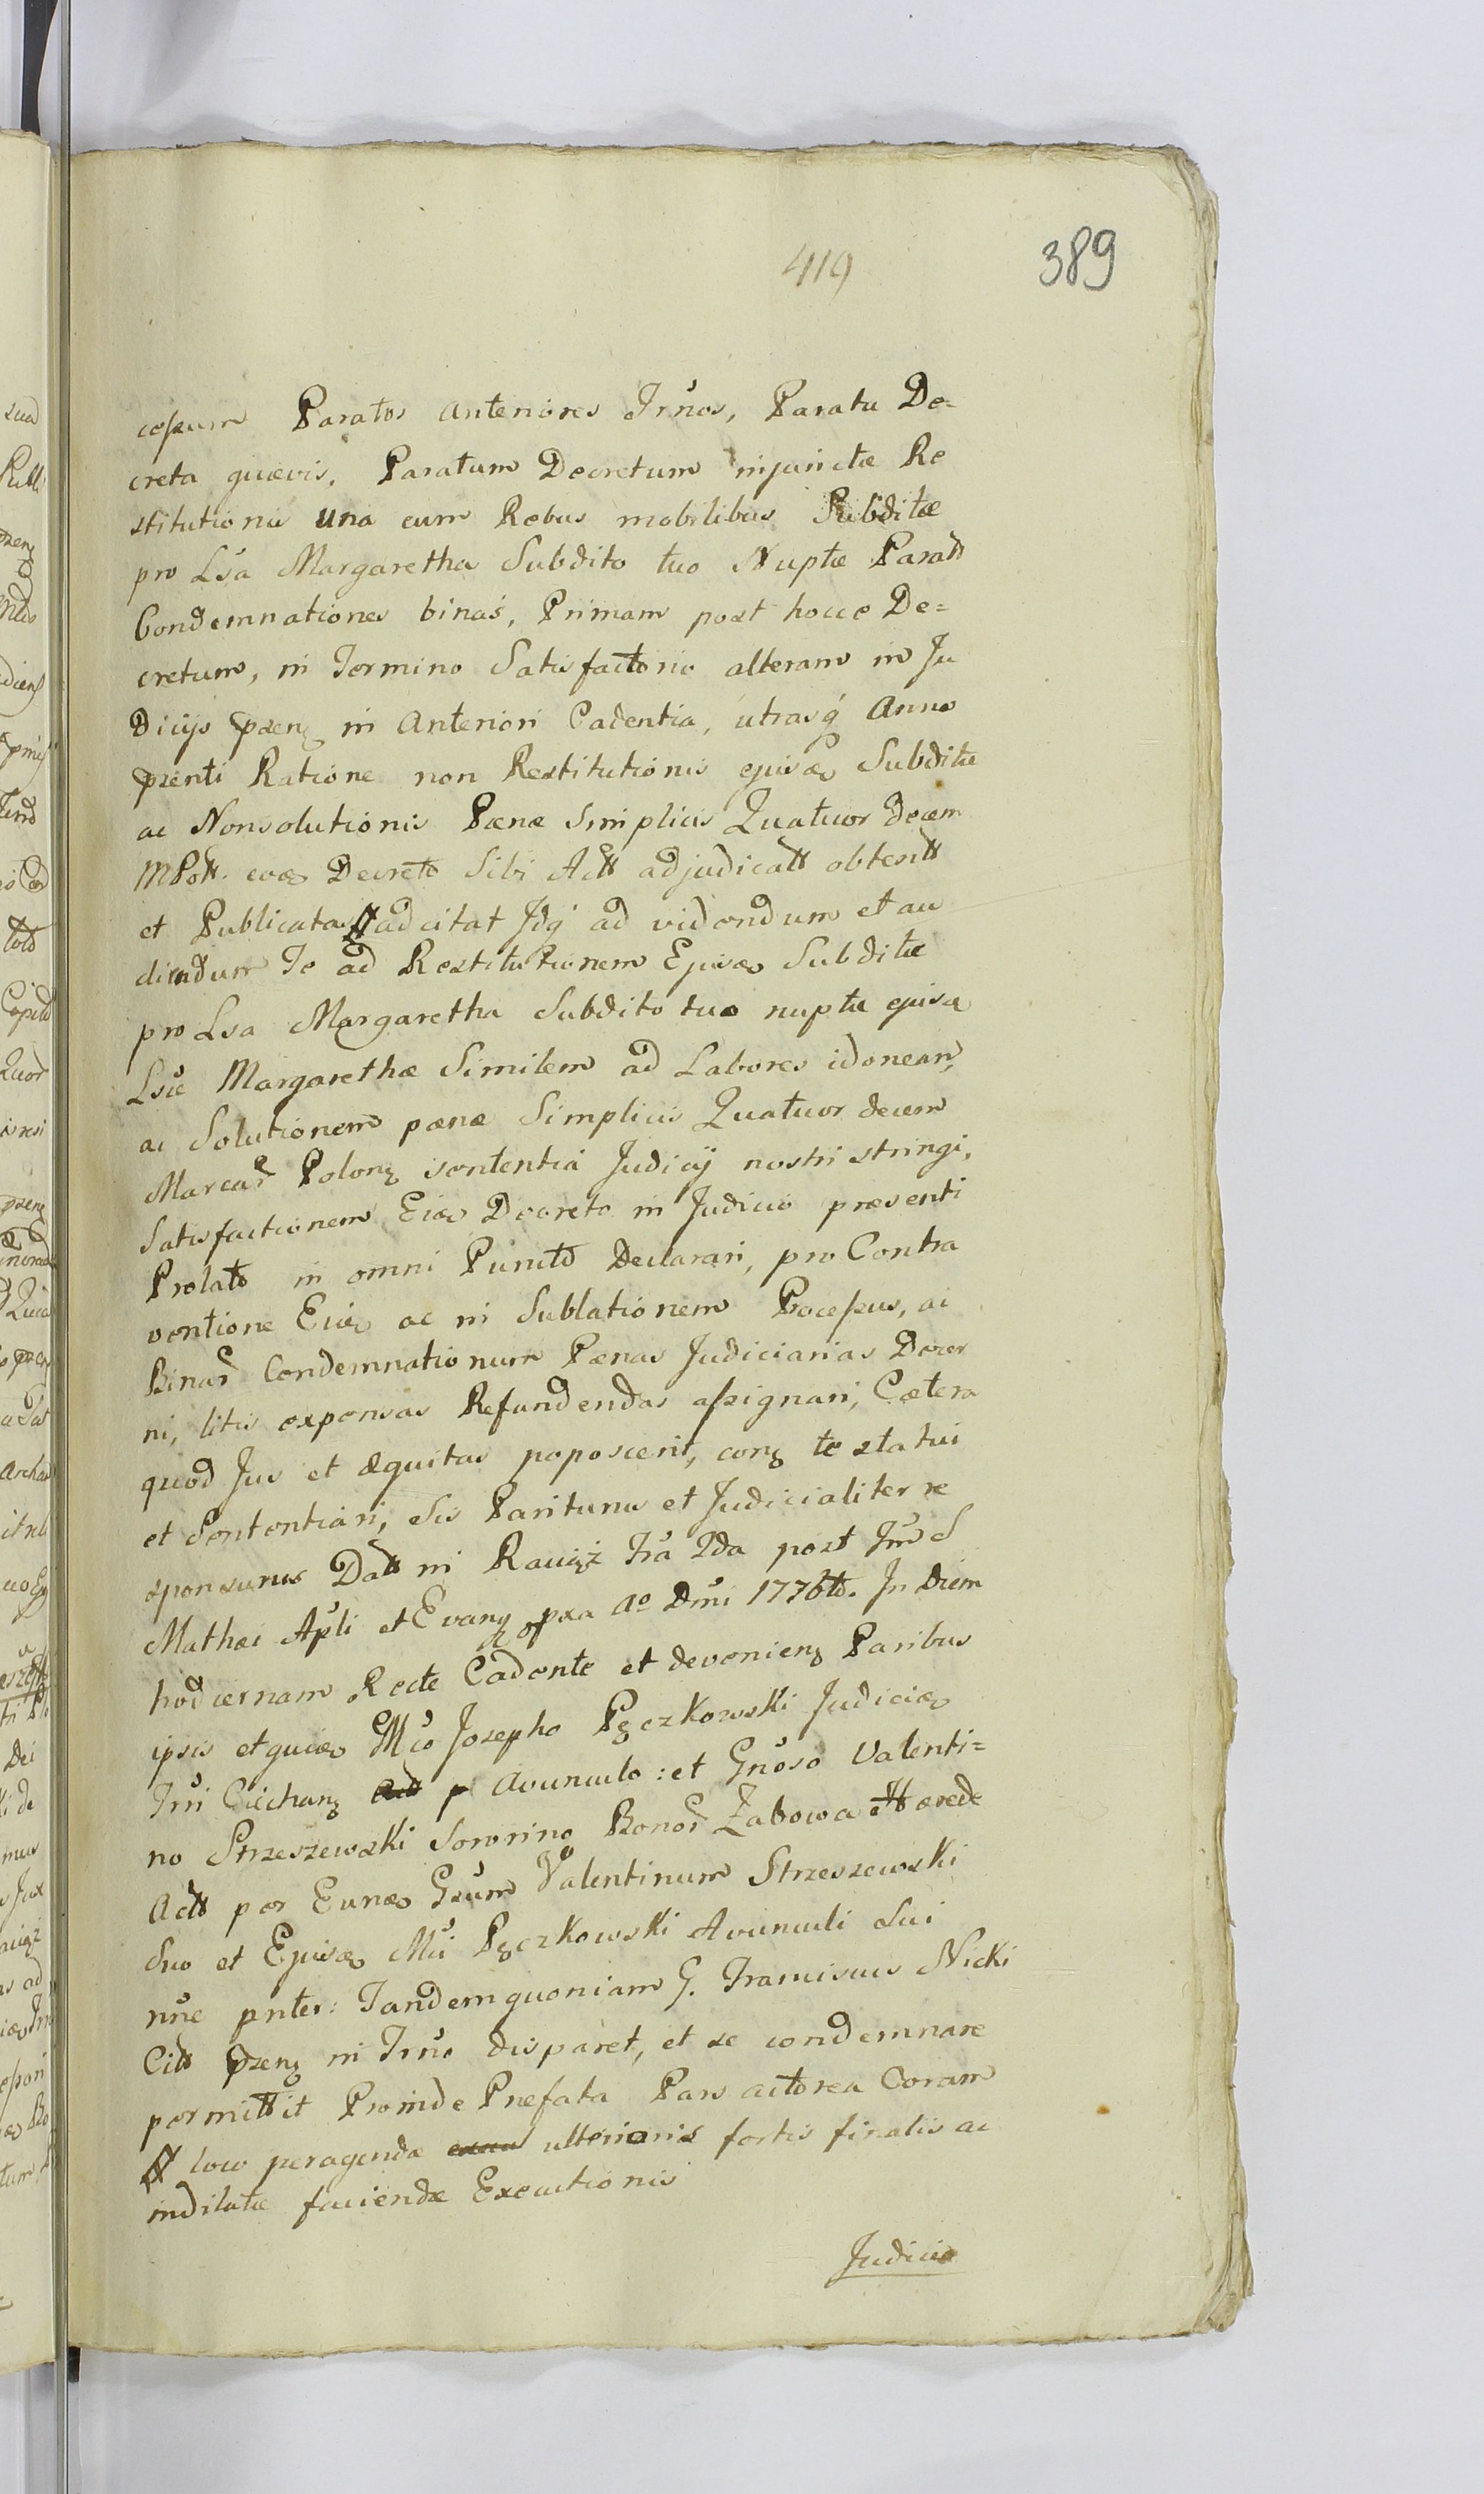 419
389
cessum Paratos anteriores Trnos, Parata De=
creta quævis, Paratum Decretum injunctæ Re
stitutionis una cum Rebus mobilibus Subditæ
pro Lsa Margaretha Subdito tuo Nuptæ Parats
Condemnationes binas, Primam post hocce De=
cretum, in Termino Satisfactorio alteram in Ju
dicijs pzenz in Anteriori Cadentia, utrasq Anno
pzenti Ratione non Restitutionis ejusœ Subditæ
ac Nonsolutionis Pœnæ Simplicis Quatuor decem
MPoll. Decreto Sibi Actt adjudicatt obtentt
et Publicatas adcitat Idq ad videndum et au
diendum Te ad Restitutionem Ejusœ Subditæ
pro Lsa Margaretha Subdito tuo nuptæ ejusœ
Lsæ Margarethæ Similem ad Labores idonean,
ac Solutionem pœnæ Simplicis Quatuor decem
Marcar Polonz sententiâ Judicij nostri stringi,
Satisfactionem Decreto in Judicio præsenti
Prolato in omni Puncto Declarari, pro Contra
ventione ac in Sublationem Processus, ac
Binar Condemnationum Pœnas Judiciarias Decer
ni, litis expensas Refundendas assignari, Cætera
quod Jus et Æquitas poposcerit, conz te statui
et Sententiari, Sis Pariturus et Judicialiter re
sponsurus Datt in Rauigż Fra 2da post Fm S
Mathæi Apli et Evang pxa Ao Dmi 1776to. In diem
hodiernam Recte Cadente et devenienz Paribus
ipsis et Mco Josepho Pęczkowski Judiciœ
Trri Ciechanz p Avunculo: et Gnoso Valenti=
no Strzeszewski Sororino Bonor Żabowa Hærede
Actt per Gsum Valentinum Strzeszewski
Suo et Ejusœ Mci Pęczkowski Avunculi Sui
nne pnter: Tandem quoniam G. Franciscus Nicki
Citt pzenz in Trno disparet, et se condemnare
permittit Proinde Prefata Pars actorea Coram
loco peragendæ ulterioris fortis finalis ac
indilatæ faciendæ Executionis
Judicio